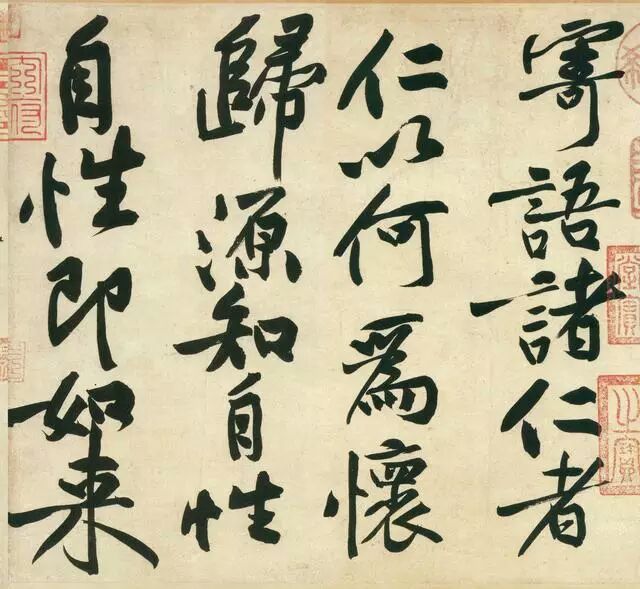 寄語諸仁者
仁以何為懷
歸源知自性
自性即如来